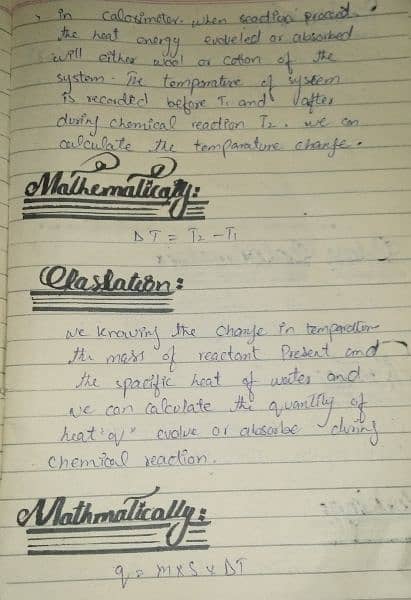 , in calorimeter when reaction proceed
the heat energy evoleled or absorbed
will either wool or cotton of the
system. The temporative of system
is recorded before T1 and after
during chemical reaction T2. we can
calculate the temparature change.
Mathematically:
ΔT = T2 - T1
Claslation:
we knowing the change in temperature
the mass of reactant Present and
the spacific heat of water and
we can calculate the quantity of
heat "q" evolve or absorbe during
chemical reaction.
Mathmatically:
q = m x s x ΔT